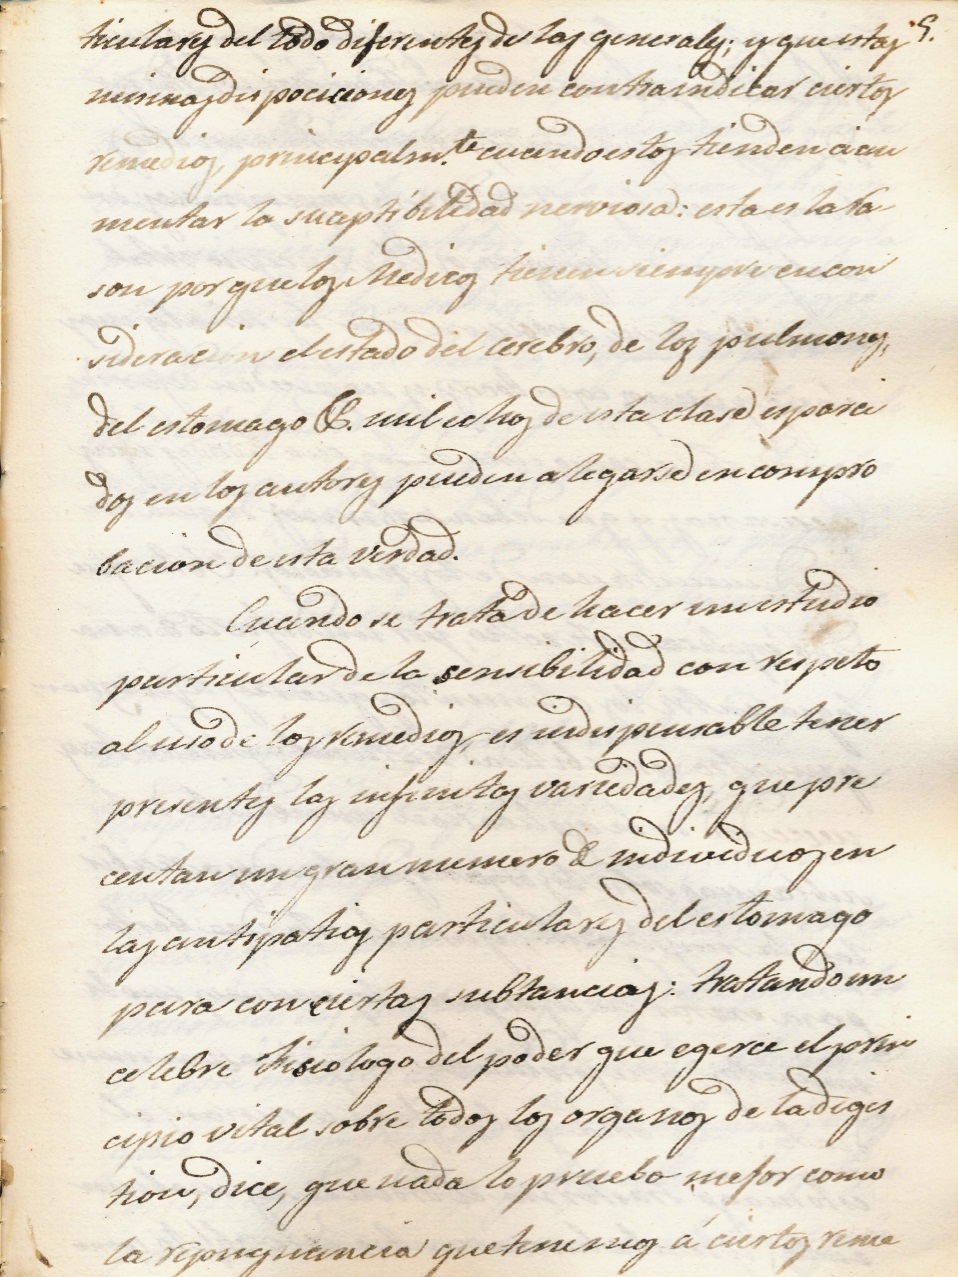 ticulares del todo diferentes de las generales; y que estas 9.
mismas disposiciones pueden contraindicar ciertos
remedios, principalm.te cuando estos tienden a au
mentar la suceptibilidad nerviosa: esta es la ra
son por que los Medicos tienen siempre en con
sideracion el estado del cerebro, de los pulmones,
del estomago &. mil echos de esta clase esparci
dos en los autores pueden alegarse en compro
bacion de esta verdad.
Cuando se trata de hacer un estudio
particular de la sensibilidad con respeto
al uso de los remedios, es indispensable tener
presentes las infinitas variedades, que pre
centan un gran numero de individuos en
las antipatias particulares del estomago
para con ciertas subtancias: tratando un
celebre Fisiologo del poder que egerce el prin
cipio vital sobre todos los organos de la diges
tion, dice, que nada lo prueba mejor como
la repugnancia que tenemos á ciertos reme